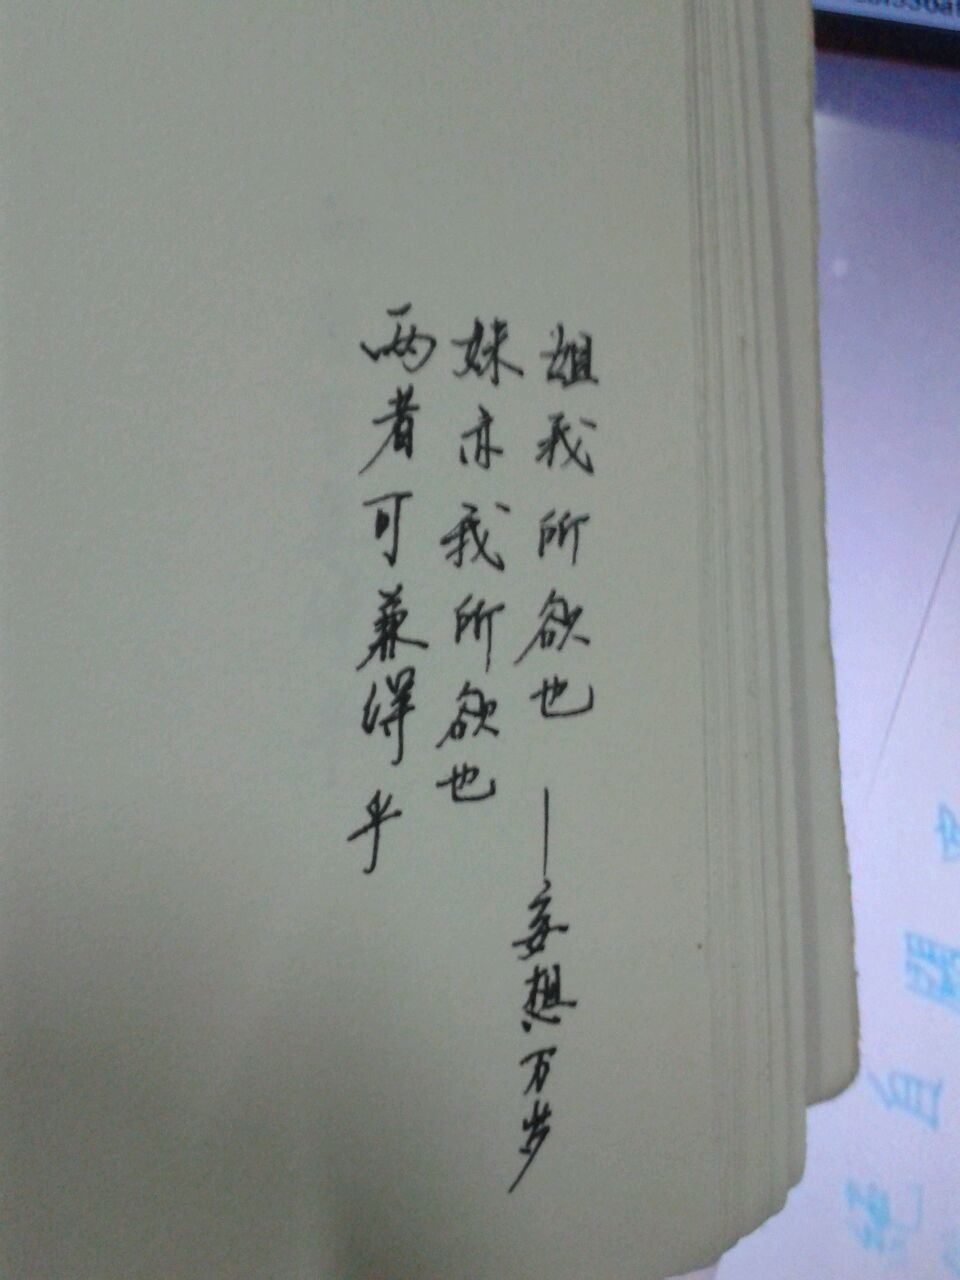 姐我所欲也 ——妄想万岁
妹亦我所欲也
两者可兼得乎